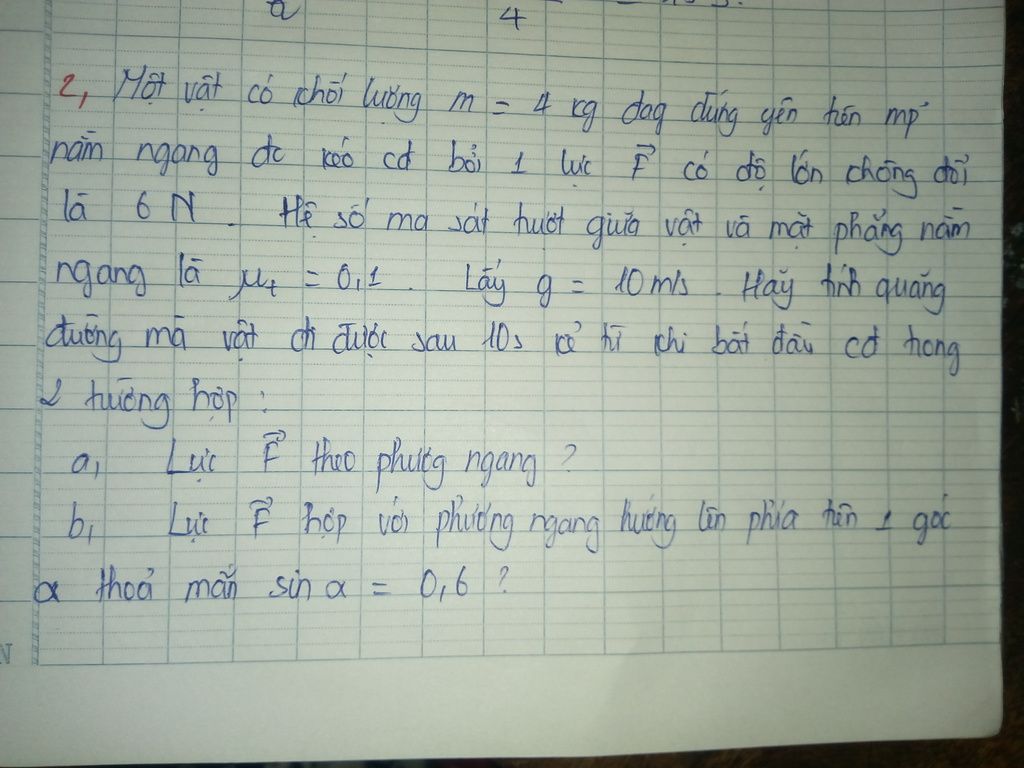 a 4
2, Một vật có khối lượng m = 4 kg đag đứng yên trên mp
nằm ngang đc kéo cđ bởi 1 lực F⃗ có độ lớn không đổi
là 6 N. Hệ số ma sát trượt giữa vật và mặt phẳng nằm
ngang là μt = 0,1. Lấy g = 10 m/s. Hãy tính quãng
đường mà vật đi được sau 10s kể từ khi bắt đầu cđ trong
2 trường hợp :
a, Lực F⃗ theo phương ngang ?
b, Lực F⃗ hợp với phương ngang hướng lên phía trên 1 góc
α thoả mãn sin α = 0,6 ?